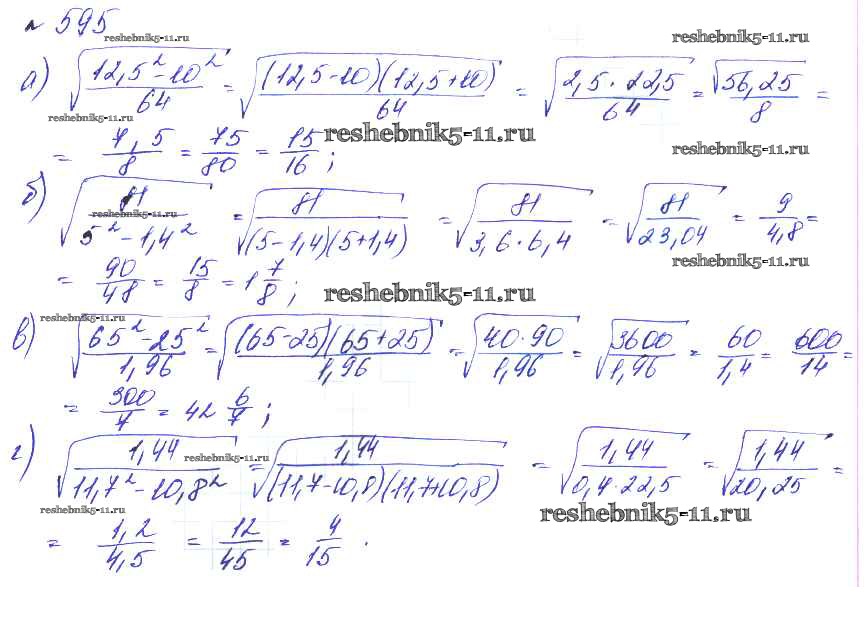 № 595
reshebnik5-11.ru
reshebnik5-11.ru
а) √((12,5² - 10²)/64) = √((12,5-10)(12,5+10)/64) = √(2,5 · 22,5/64) = √56,25/8 =
reshebnik5-11.ru
reshebnik5-11.ru
= 7,5/8 = 75/80 = 15/16 ;
reshebnik5-11.ru
б) √(81/(5² - 1,4²)) = √(81/((5-1,4)(5+1,4))) = √(81/(3,6 · 6,4)) = √(81/23,04) = 9/4,8 =
reshebnik5-11.ru
reshebnik5-11.ru
= 90/48 = 15/8 = 1 7/8 ;
reshebnik5-11.ru
reshebnik5-11.ru
в) √((65² - 25²)/1,96) = √((65-25)(65+25)/1,96) = √(40·90/1,96) = √(3600/1,96) = 60/1,4 = 600/14 =
= 300/7 = 42 6/7 ;
г) √(1,44/(11,7² - 10,8²)) = √(1,44/((11,7-10,8)(11,7+10,8))) = √(1,44/(0,4·22,5)) = √(1,44/20,25) =
reshebnik5-11.ru
reshebnik5-11.ru
reshebnik5-11.ru
= 1,2/4,5 = 12/45 = 4/15 .